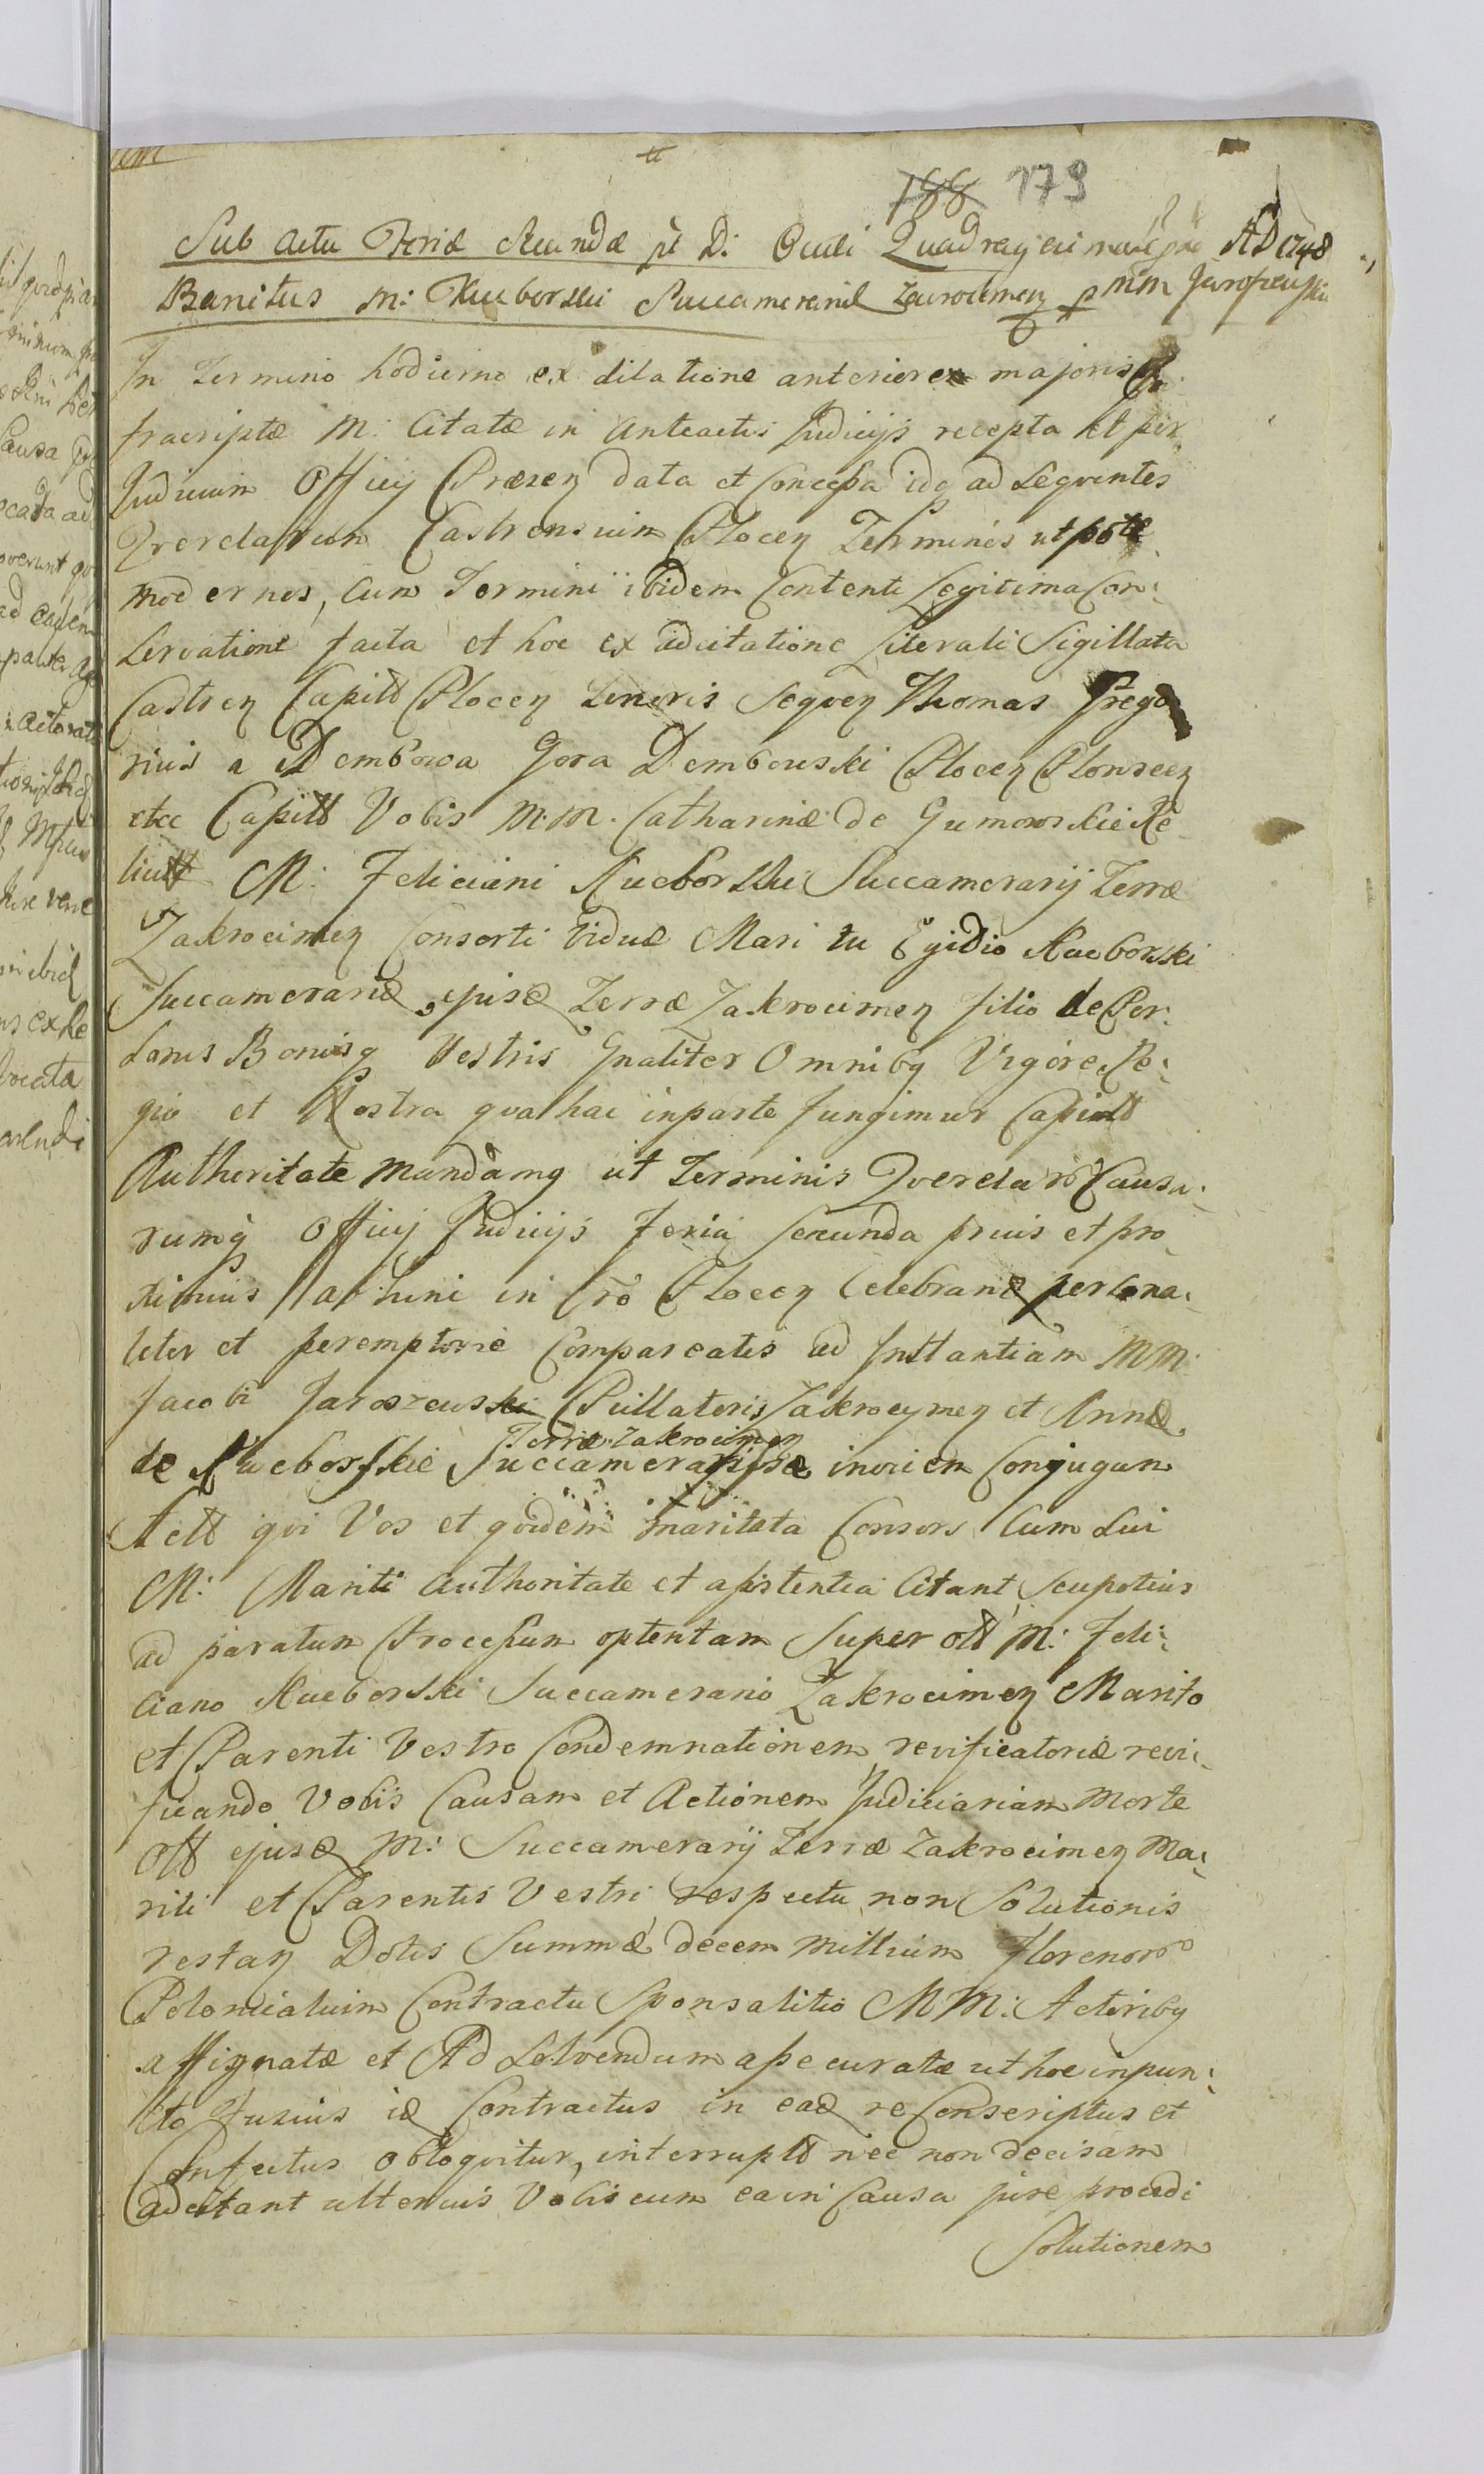 188 179
Sub Actu Feriæ Secundæ pt D: Oculi Quadragesimale AD 1748
Banitus M: Kucborski Succamerarid Zacrocimen p MM Jaroszewski
In Termino hodierno ex dilatione anteriore majoris In
frascriptæ M: Citatæ in Anteactis Judicijs recepta et per
Judicium Officij Præsen data et Concessa ide ad Seqventes
Qverelarum Castrensium Plocen Terminos utpote
modernos, Cum Termini ibidem Contenti Legitima Con:
servatione facta et hoc ex adcitatione Literali Sigillata
Castren Capitt Plocen Tenoris Seqven Thomas Grego
rius a Dembowa Gora Dembowski Plocen Plonscen
etcc Capitt Vobis M:M. Catharinæ de Gumowskie Re
lictt M: Feliciani Kucborski Succamerarij Terræ
Zakrocimen Consorti Viduæ Mari tu Egidio Kucborski
Succameraridæ ejusd Terræ Zakrocimen filio de Per:
sonis Bonisq Vestris Gnaliter Omnibq Vigore Re:
gio et Nostra qva hac inparte fungimur Capitt
Authoritate Mandamq ut Terminis Qverelarō Causa:
rumq Officij Judicijs Feria secunda prius et pro
ximius in Crō Plocen Celebrand persona:
liter et peremptorie Compareatis ad Instantiam MM:
Jacobi Jaroszewski Pocillatoris Zakrocymen et Annæ
Terræ Zakrocimen
de Kucborskie Succamerar invicem Conjugum
Actt qvi Vos et qvidem maritata Consors Cum Sui
M: Mariti Authoritate et assistentia Citant, Seupotius
ad paratum Processum optentam Super Ott M: Feli:
ciano Kucborski Succamerario Zakrocimen Marito
et Parenti Vestro Condemnationem revificatoriæ revi:
ficando Vobis Causam et Actionem Judiciariam Morte
Ott ejusd M: Succamerarij Terræ Zakrocimen Ma:
riti et Parentis Vestri respectu non Solutionis
restan Dotis Summæ decem millium Florenorō
Polonicalium Contractu Sponsalitio MM: Actoribq
assignatæ et Ad Solvendum assecuratæ ut hoc inpun:
cto fusius id Contractus in ead re Conscriptus et
Confectus obloqvitur, interruptt nec non decisam
adcitant attenus Vobiscum eain Causa jure procedi
Solutionem